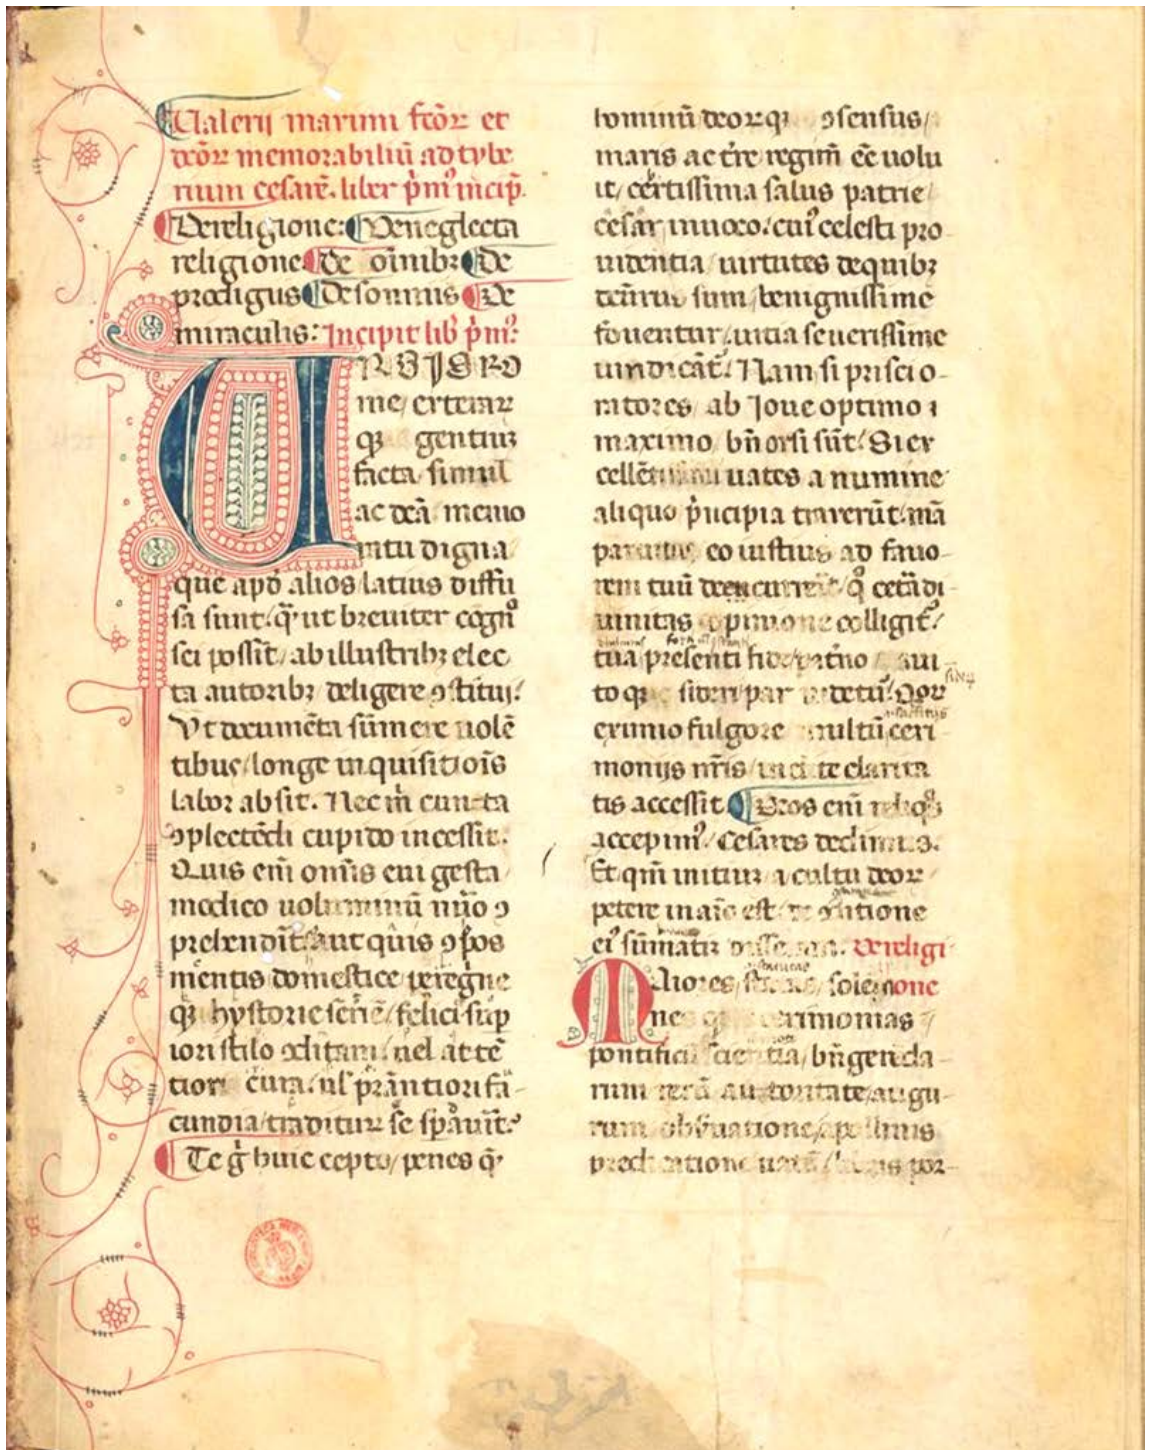 Ualerii maximi fcōꝝ et
dcōꝝ memorabiliū ad tybe
rium cesarē. liber p̄mꝰ incip̄.
De religione: De neglecta
religione De oīnibꝫ De
prodigiis De somniis De
miraculis: Incipit lib̄ p̄mꝰ
URBIS RO
me/ exterarꝝ
qꝫ gentiuꝫ
facta simul
ac dc̄ā memo
ratu digna
que apd̄ alios latius diffu
sa sunt/ q̄ꝫ ut breuiter cogn̄o
sci possīt/ ab illustribꝫ elec
ta autoribꝫ deligere ꝯstitui/
Ut documēta sūmere uolē
tibus/ longe inquisitiōis
labor absit. Nec m̄ cuncta
ꝯplectēdi cupido incessit.
Quis eni omīs eui gesta
modico uoluminū nūo ꝯ
prehendīt/ aut quis ꝯpos
mentis domestice peregr̄ne
qꝫ hystorie seriē/ felici suꝑ
iori stilo ꝯditam/ uel attē
tiori cura/ ul̄ prāntiori fa-
cundia/ traditurꝫ se sperauīt?
Te g̊ huic cepto/ penes q̄
hominū deorꝫ qꝫ ꝯsensus/
maris ac tr̄e regim̄ eē uolu
it/ certissima salus patrie/
cesar inuoco/ cuiꝰ celesti pro-
uidentia/ uirtutes de quibꝫ
dcūrus sum/ benignissime
fouentur/ uitia seuerissime
uindicāt̄. Nam si prisci o-
ratores/ ab Ioue optimo ⁊
maximo/ bn̄ orsi sūt/ Si ex
uates a numine
aliquo p̄ncipia traxerūt/ mā
paruitas/ eo iustius ad fauo-
rem tuū decucurrerit/ qͦ cetā di
uinitas opinione colligit̄/
tua presenti fide/ patn̄o aui
to qꝫ sideri par uidetur/ Quoꝝ
eximio fulgore multū ceri
moniis nr̄is/ incl. te clarita
tis accessit Deos eni reliqͦs
accepimꝰ/ Cesares dedimus.
Et qm̄ initiuꝫ a cultu deoꝝ
petere in aīo est/ de ꝯditione
eiꝰ sūmatiꝫ disseram. De religi
one
Maiores, solem
nes qꝫ cerimonias
pontificū scientia/ bn̄ gerēda-
rum rerū autoritate/ augu-
rum obseruatione/ apollinis
predicatione uatū/ libris por-